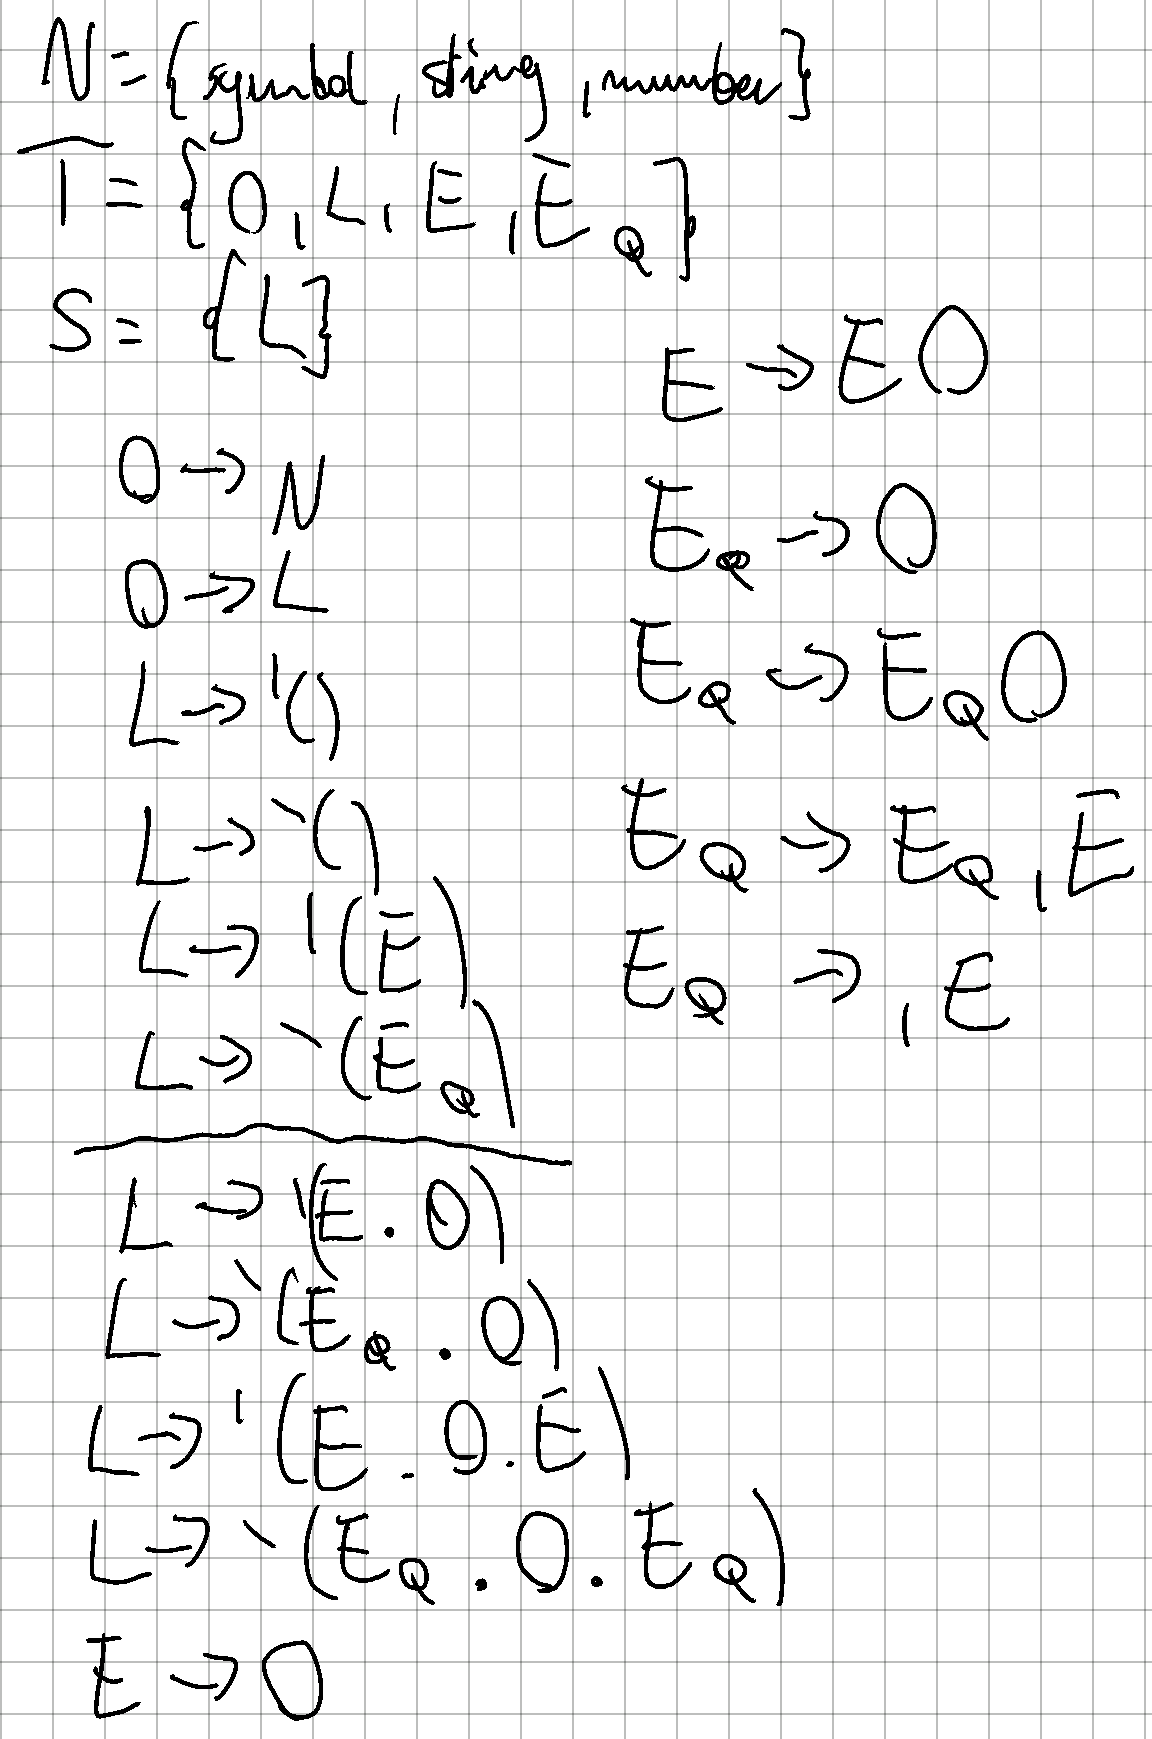 N = {symbol, string, number}
T = {O, L, E, E_Q}
S = {L}
O → N
O → L
L → '()
L → `()
L → '(E)
L → `(E_Q)
L → '(E . O)
L → `(E_Q . O)
L → '(E . O . E)
L → `(E_Q . O . E_Q)
E → O
E → E O
E_Q → O
E_Q → E_Q O
E_Q → E_Q , E
E_Q → , E